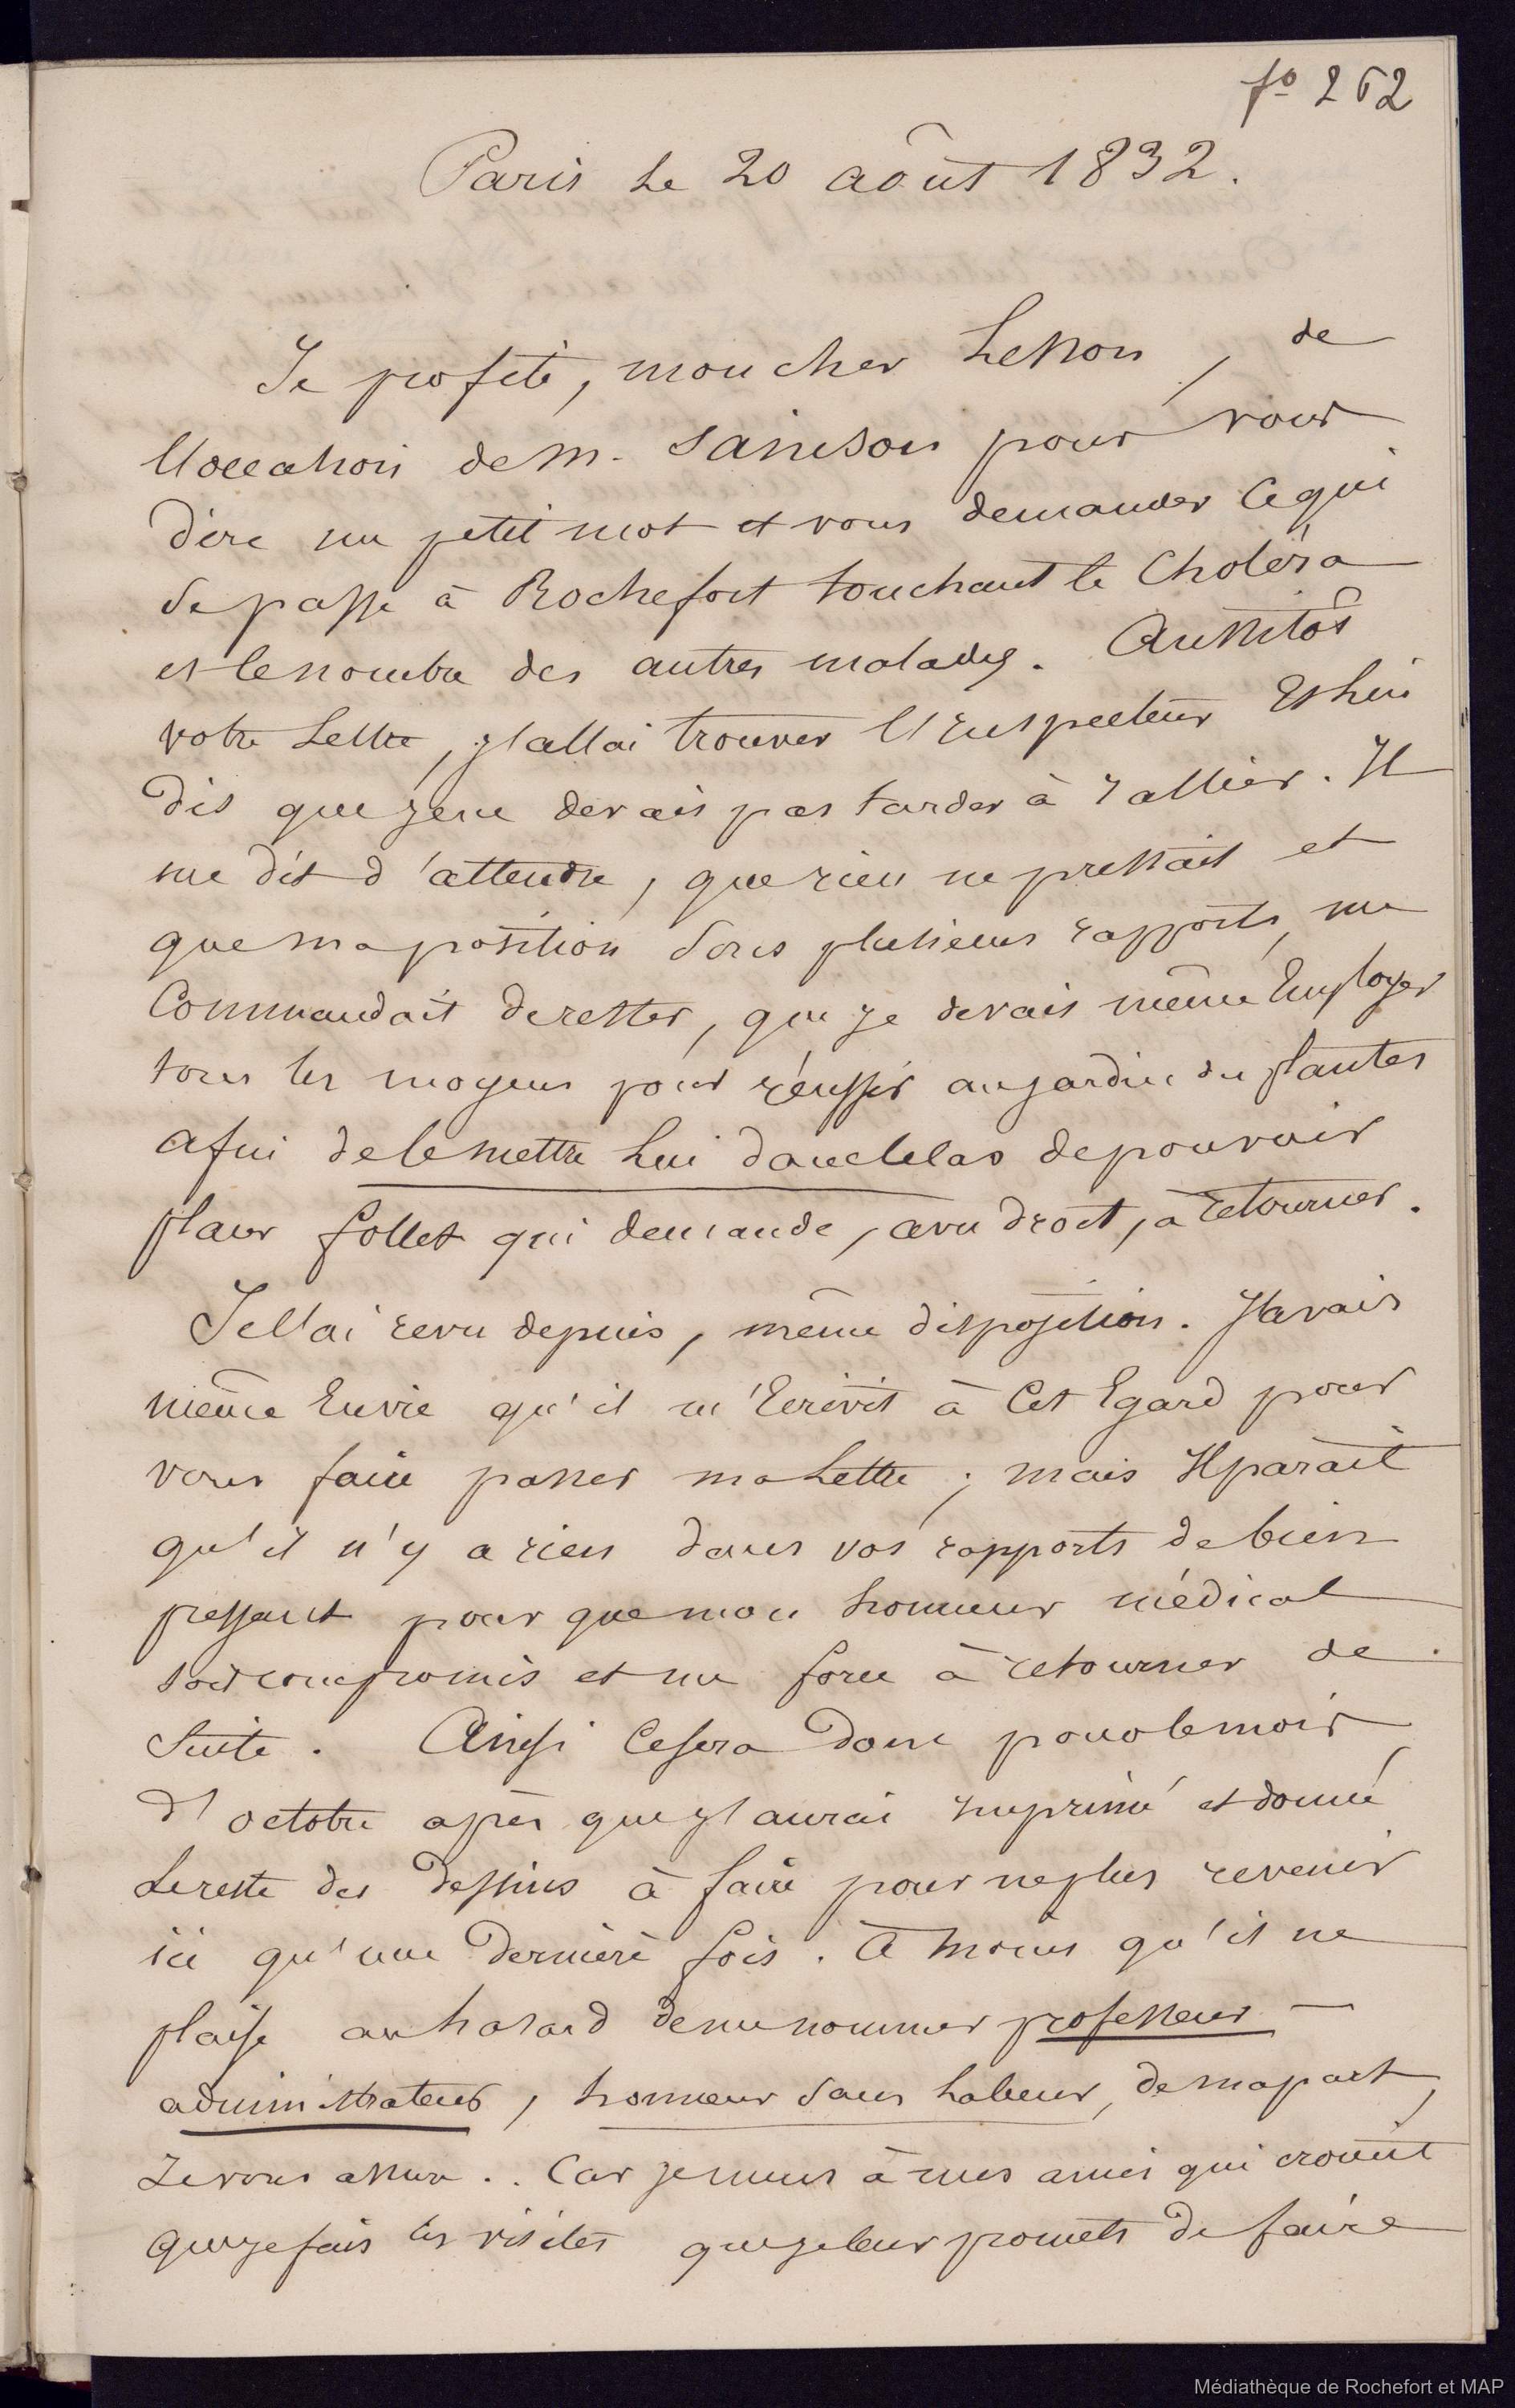 fo 262
Paris le 20 août 1832.
Je profite, mon cher Lesson, de
l'occasion de M. Sainson pour vous
dire un petit mot et vous demander ce qui
se passe à Rochefort touchant le Choléra
et le nombre des autres malades. Aussitôt
votre Lettre, j'allai trouver l'Inspecteur et lui
dis que je ne devais pas tarder à rallier. Il
me dit d'attendre, que rien ne pressait et
que ma position sous plusieurs rapports, me
Commandait de rester, que je devais même Employer
tous les moyens pour réussir au jardin des plantes
afin de le mettre Lui dans le cas de pouvoir
placer follet qui demande, avec droit, à retourner.
Je l'ai revu depuis, même disposition. J'avais
même Envie qu'il m'Ecrivît à Cet Egard pour
vous faire passer ma Lettre ; mais Il paraît
qu'il n'y a rien dans vos rapports de bien
pressant pour que mon honneur médical
soit compromis et me force à retourner de
suite. Ainsi Ce sera donc pour le mois
d'octobre après que j'aurai Imprimé et donné
Le reste des Dessins à faire pour ne plus revenir
ici qu'une Dernière fois. à moins qu'il ne
plaise au hasard de me nommer professeur -
administrateur, honneur sans labeur, de ma part,
Je vous assure. . Car je mens à mes amis qui croient
que je fais les visites que je leur promets de faire
Médiathèque de Rochefort et MAP